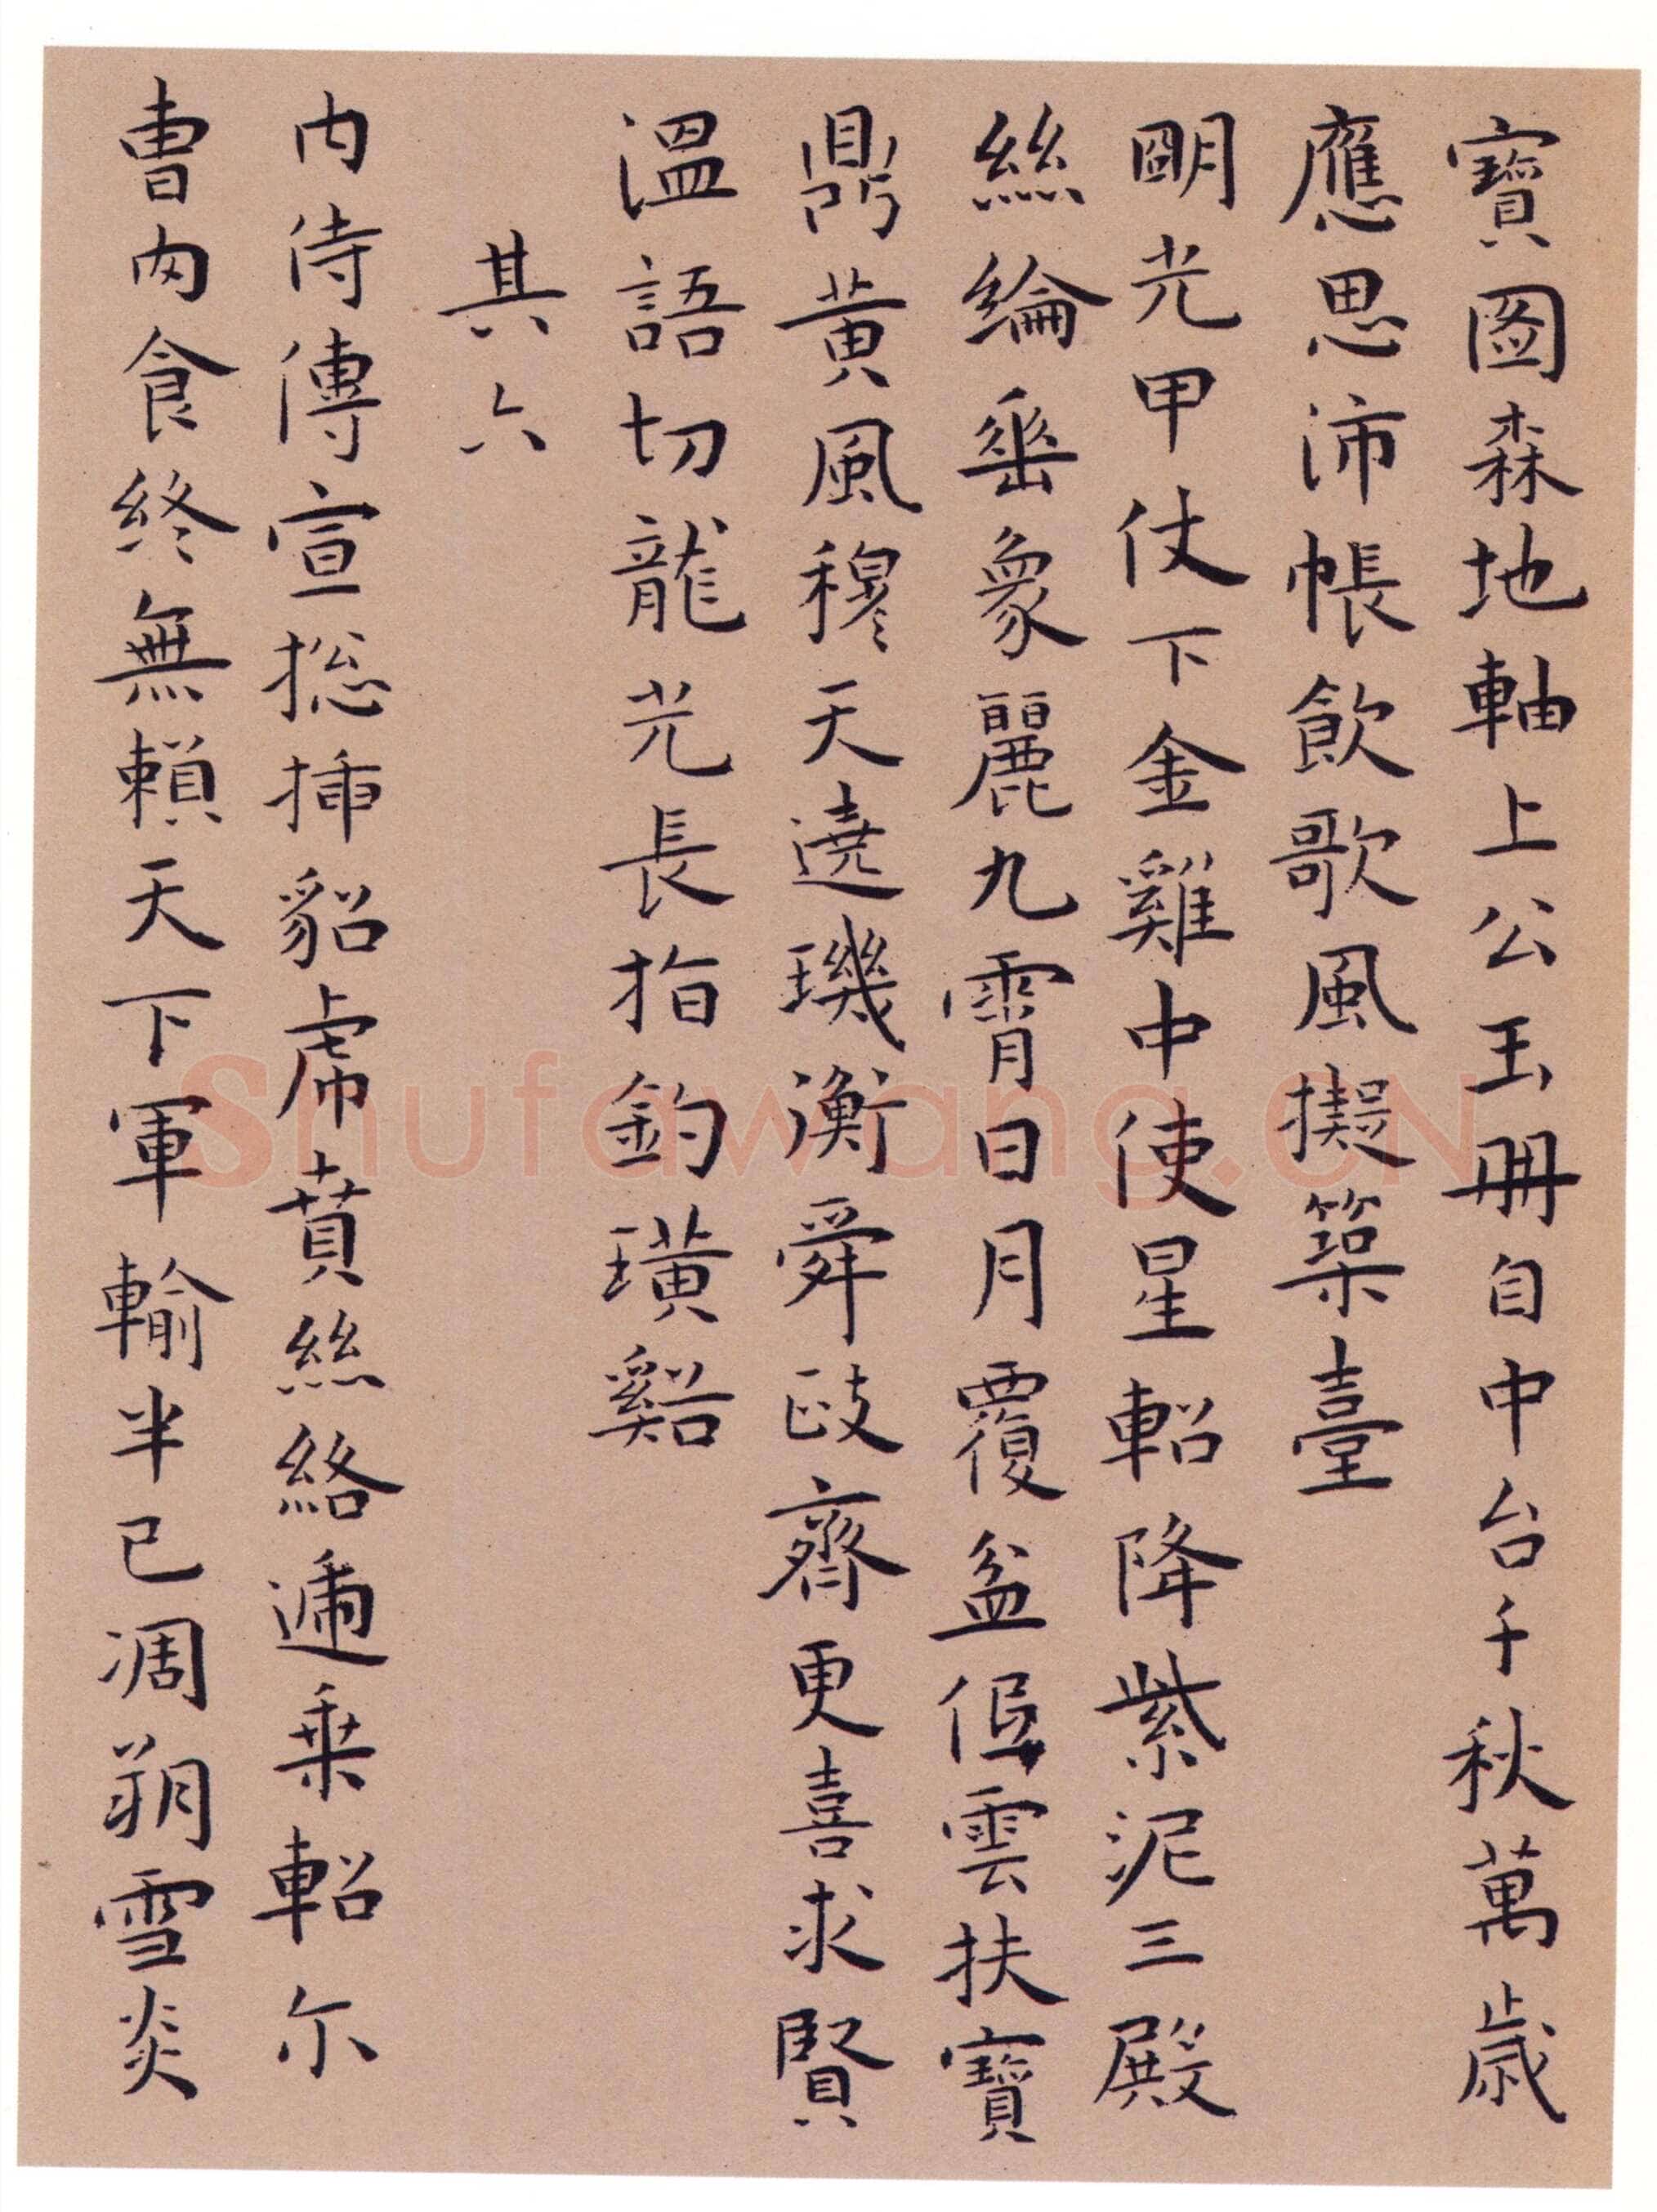 寶圖森地軸上公玉冊自中台千秋萬歲
應思沛帳飲歌風擬築臺
明光甲仗下金雞中使星軺降紫泥三殿
絲綸垂象麗九霄日月覆盆低雲扶寶
鼎黃風穆天遶璣衡舜政齊更喜求賢
溫語切龍光長指釣璜谿
其六
內侍傳宣捴揷貂虎賁絲絡遞乘軺尔
曹肉食終無賴天下軍輸半已凋朔雪炎
Shufawang.CN